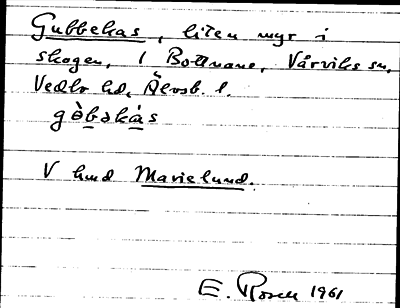 Gubbekas, liten myr i
skogen, i Bottnane, Vårviks sn,
Vedbo hd, Älvsb. l.
gòbəkȧs
V hmd Marielund.
E. Rosell 1961